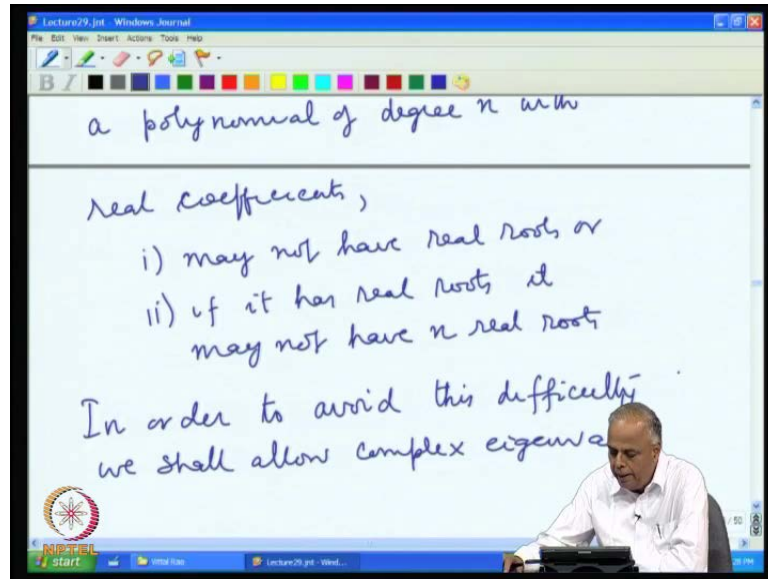 Lecture29.jnt - Windows Journal
File Edit View Insert Actions Tools Help
B I
a polynomial of degree n with
real coefficients,
i) may not have real roots or
ii) if it has real roots it
may not have n real roots
In order to avoid this difficulty
we shall allow complex eigenva
/ 50
NPTEL
start
Vittal Rao
Lecture29.jnt - Wind...
:28 PM